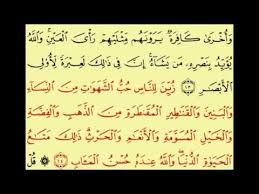 وَأُخْرَىٰ كَافِرَةٌ يَرَوْنَهُم مِّثْلَيْهِمْ رَأْىَ ٱلْعَيْنِ وَٱللَّهُ
يُؤَيِّدُ بِنَصْرِهِۦ مَن يَشَآءُ إِنَّ فِى ذَٰلِكَ لَعِبْرَةً لِّأُو۟لِى
ٱلْأَبْصَٰرِ ١٣ زُيِّنَ لِلنَّاسِ حُبُّ ٱلشَّهَوَٰتِ مِنَ ٱلنِّسَآءِ
وَٱلْبَنِينَ وَٱلْقَنَٰطِيرِ ٱلْمُقَنطَرَةِ مِنَ ٱلذَّهَبِ وَٱلْفِضَّةِ
وَٱلْخَيْلِ ٱلْمُسَوَّمَةِ وَٱلْأَنْعَٰمِ وَٱلْحَرْثِ ذَٰلِكَ مَتَٰعُ
ٱلْحَيَوٰةِ ٱلدُّنْيَا وَٱللَّهُ عِندَهُۥ حُسْنُ ٱلْمَـَٔابِ ١٤ قُلْ